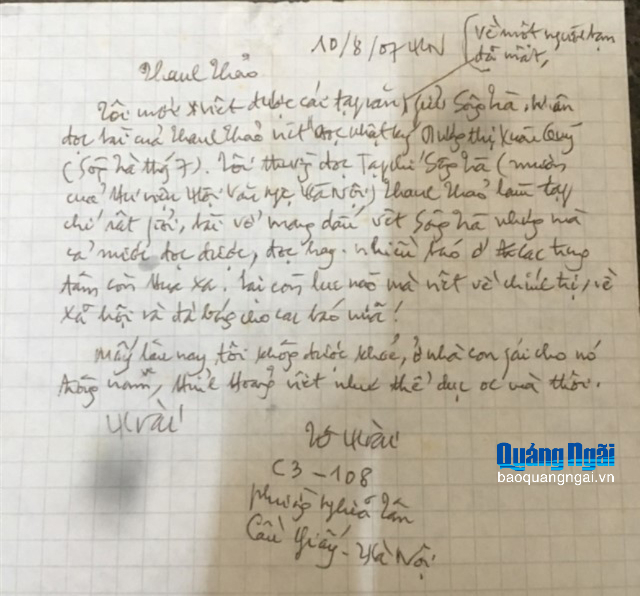 10/8/07 HN (về một người bạn
đã mất,
Thanh Thảo
Tôi mới viết được các tạp văn, gửi Sông Trà. Nhân
đọc bài của Thanh Thảo viết "đọc nhật ký Dương Thị Xuân Quý
(Sông Trà thg 7). Tôi thường đọc Tạp chí Sông Trà (mượn
của thư viện Hội Văn học Hà Nội) Thanh Thảo làm tạp
chí rất giỏi, bài vở mang dấu vết Sông Trà nhưng mà
cả nước đọc được, đọc hay. nhiều báo ở các trung
tâm còn thua xa. Lại còn lúc nào mà viết về chính trị, về
xã hội và đá bóng cho các báo nữa!
Mấy lâu nay tôi không được khoẻ, ở nhà con gái cho nó
trông nom, thỉnh thoảng viết như thể dục óc mà thôi.
Hoài
Tô Hoài
C3-108
phường Nghĩa Tân
Cầu Giấy - Hà Nội
Quảng Ngãi
baoquangngai.vn